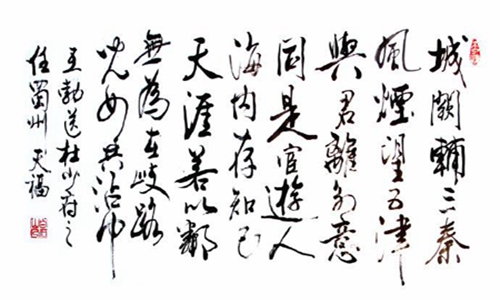 城闕輔三秦
風煙望五津
與君離別意
同是宦遊人
海內存知己
天涯若比鄰
無為在歧路
兒女共沾巾
王勃送杜少府之
任蜀州 天福